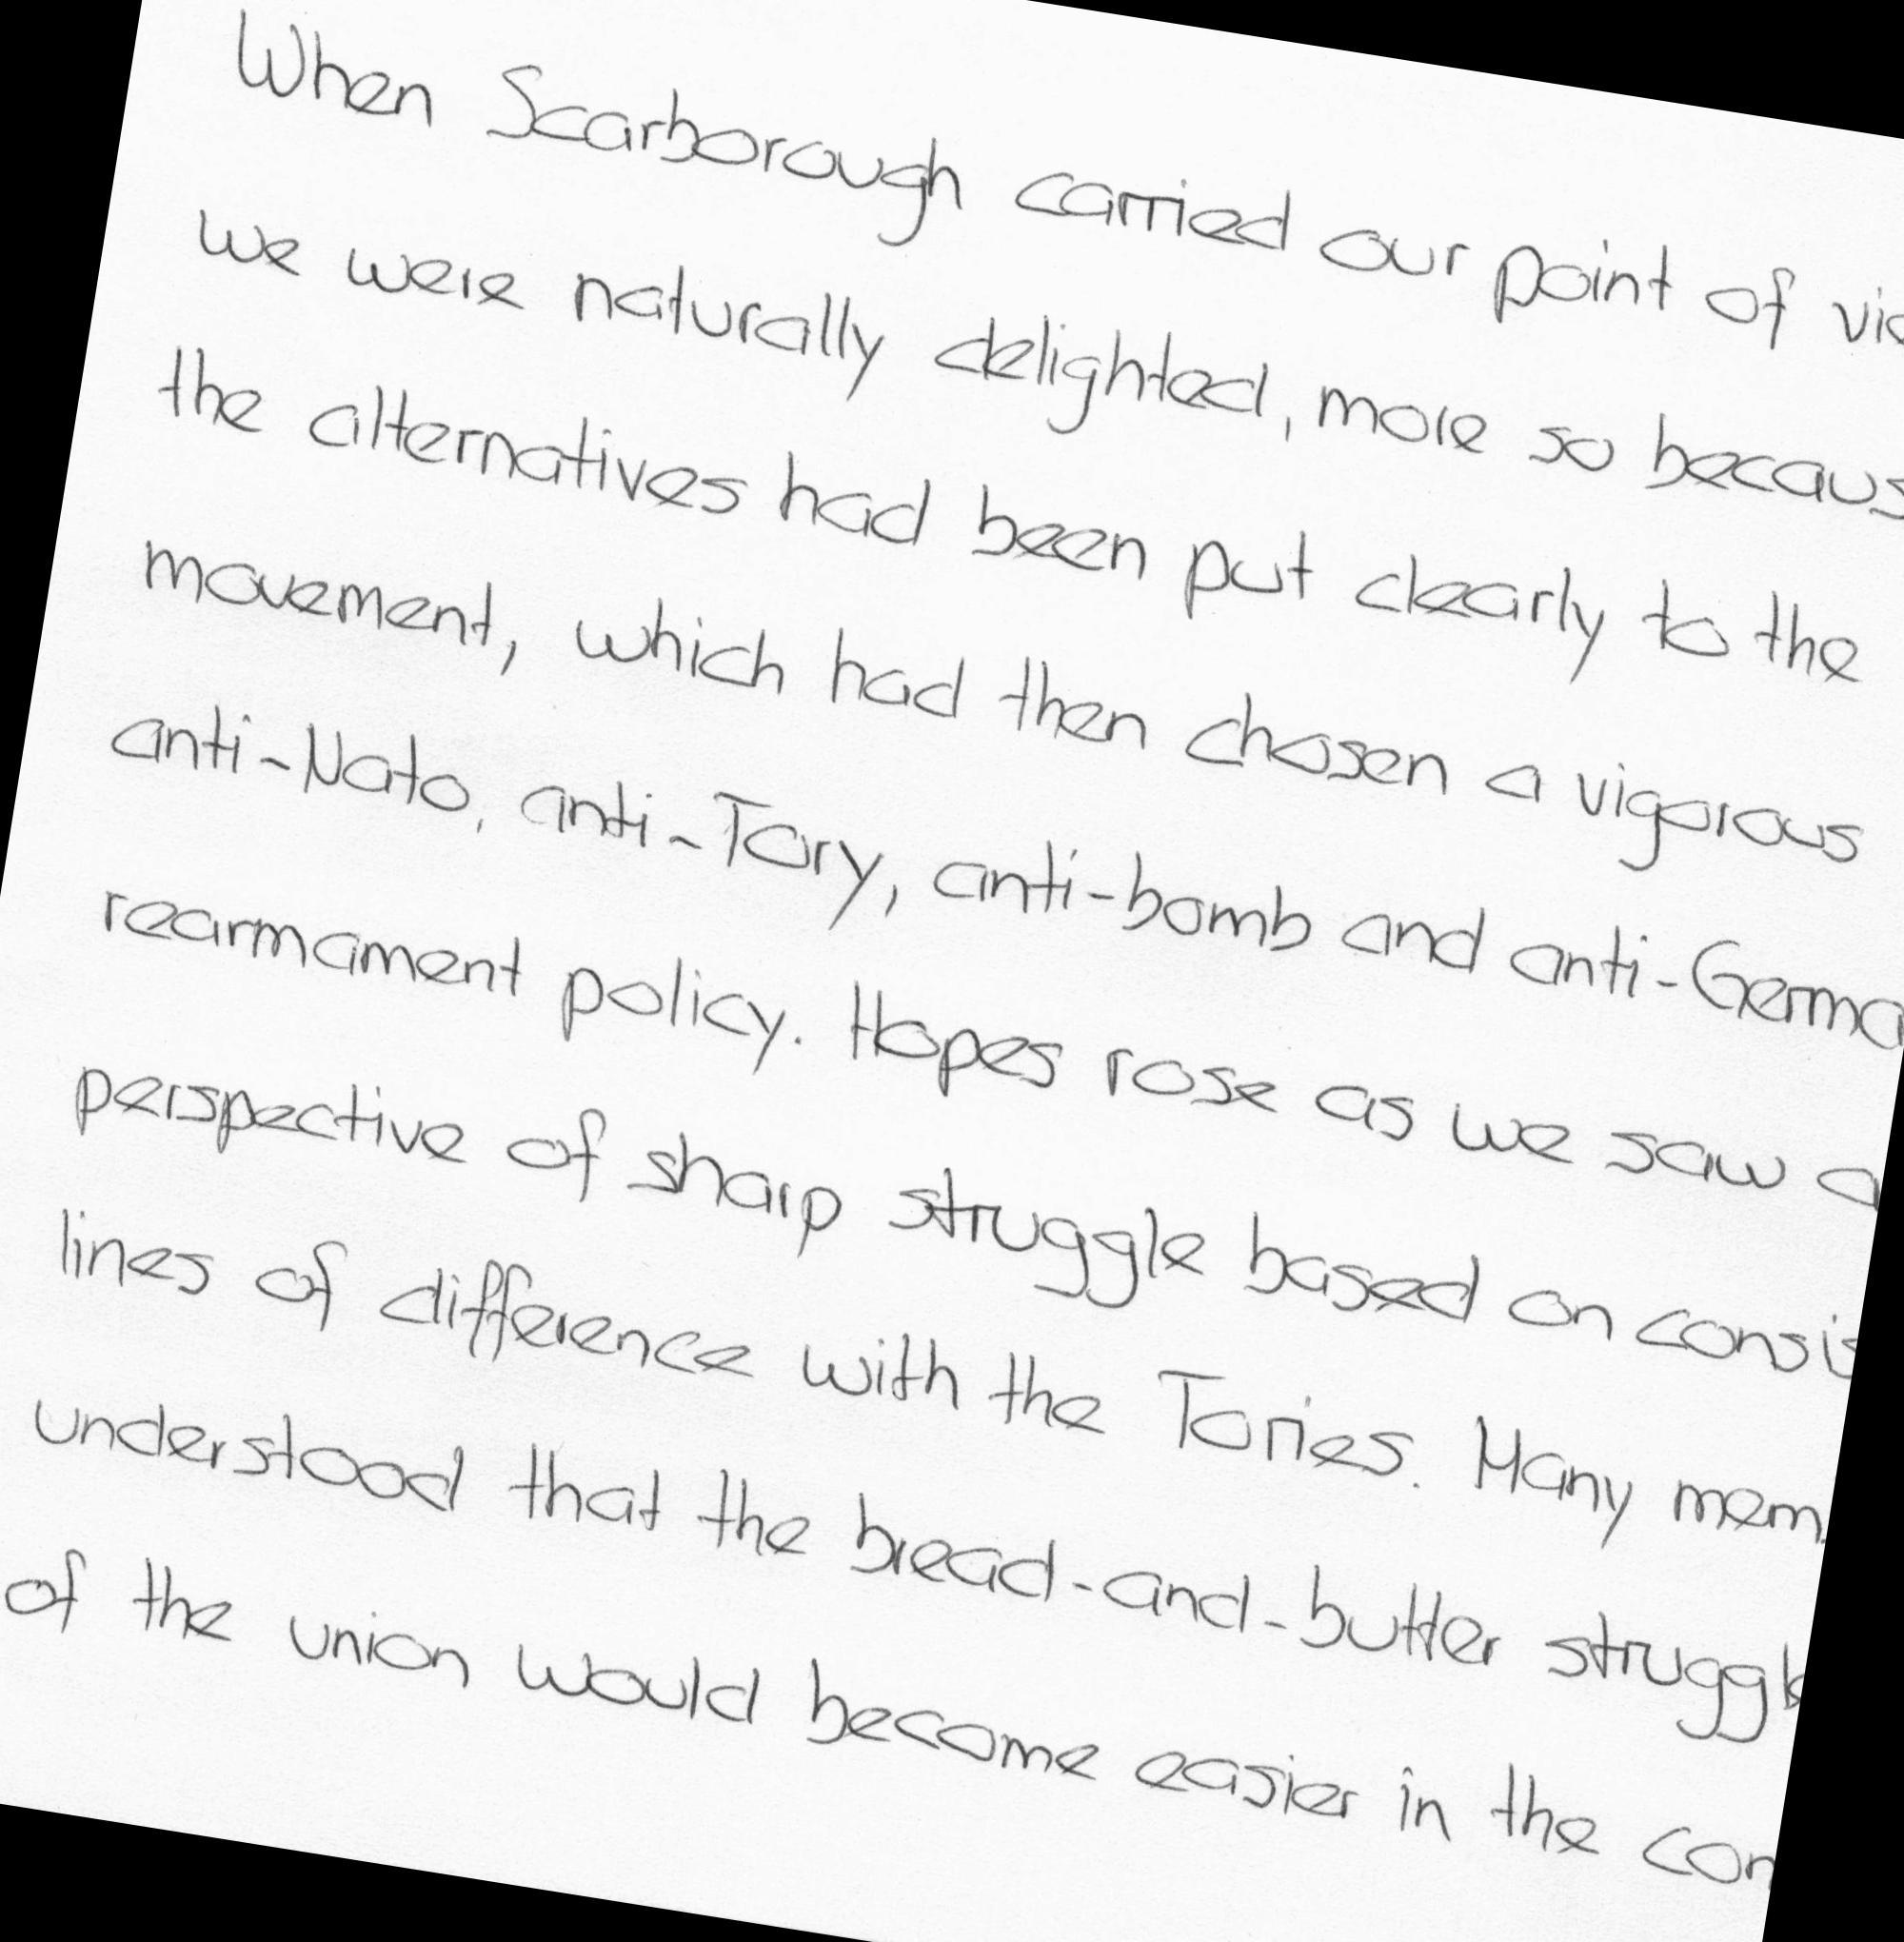 When Scarborough carried our point of
we were naturally delighted, more so
the alternatives had been put clearly to the
movement, which had then chosen a vigorous
anti-Nato, anti-Tory, anti-bomb and
rearmament policy. Hopes rose as we saw a
perspective of sharp struggle based on
lines of difference with the Tories. Many
understood that the bread-and-butter
of the union would become easier in the